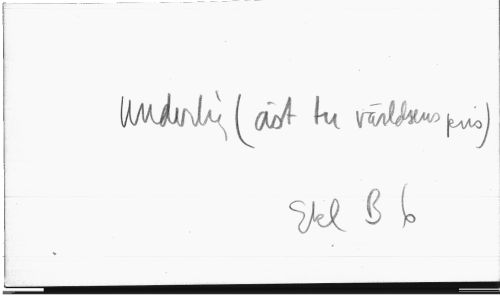 Underlig (äst tu världsens pris)
Ekl B 6